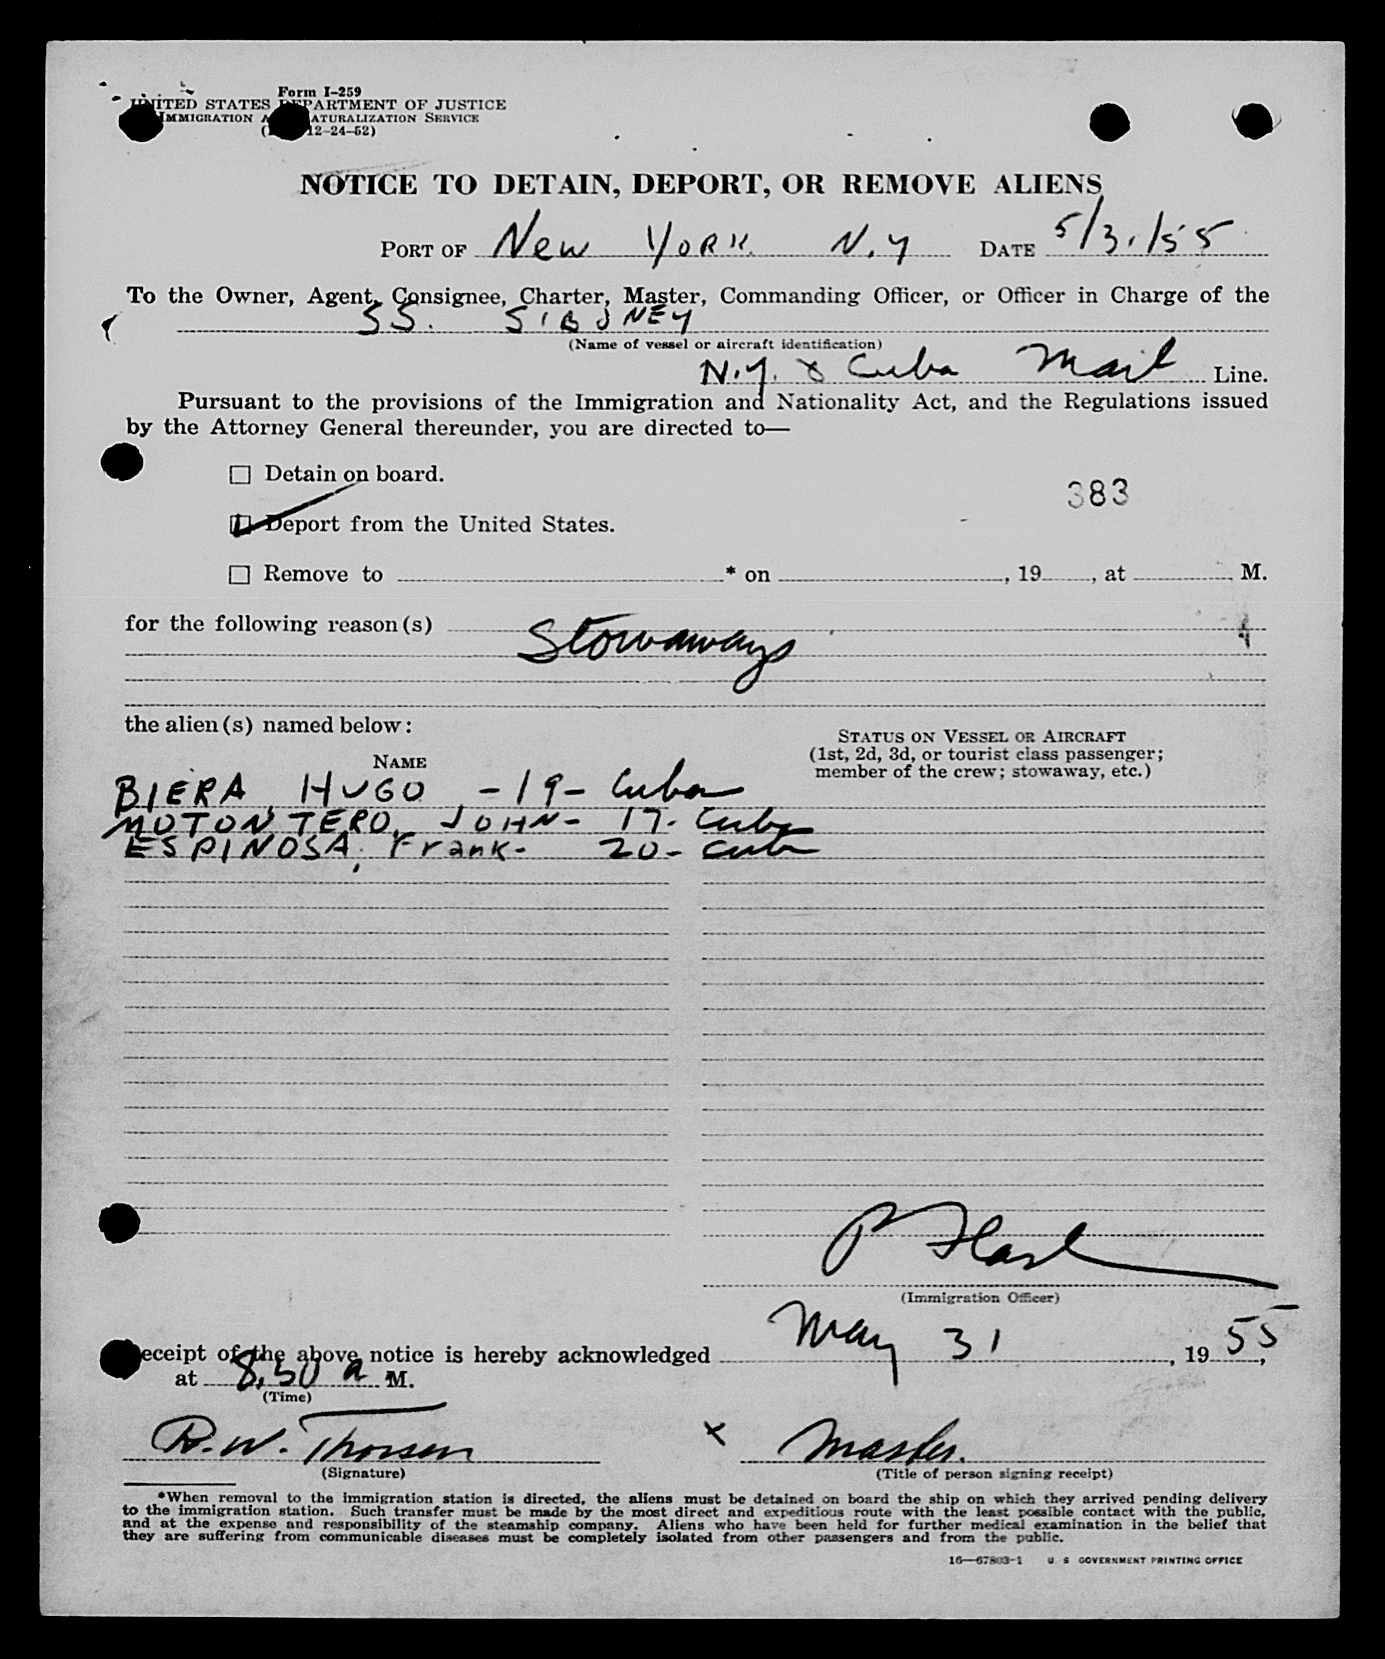 Form I-259
UNITED STATES DEPARTMENT OF JUSTICE
IMMIGRATION NATURALIZATION SERVICE
12-24-52)
NOTICE TO DETAIN, DEPORT, OR REMOVE ALIENS
PORT OF New YORK. N.Y DATE 5/31/55
To the Owner, Agent, Consignee, Charter, Master, Commanding Officer, or Officer in Charge of the
SS. SIBONEY
(Name of vessel or aircraft identification)
N.Y. & Cuba Mail Line.
Pursuant to the provisions of the Immigration and Nationality Act, and the Regulations issued
by the Attorney General thereunder, you are directed to—
☐ Detain on board.
383
Deport from the United States.
☐ Remove to * on , 19 , at M.
for the following reason(s)
Stowaways
the alien(s) named below:
STATUS ON VESSEL OR AIRCRAFT
(1st, 2d, 3d, or tourist class passenger;
member of the crew; stowaway, etc.)
NAME
BIERA, HUGO -19- Cuban
MOTONTERO, JOHN- 17- Cuba
ESPINOSA, Frank- 20- Cuba
(Immigration Officer)
Receipt of the above notice is hereby acknowledged May 31, 1955,
at 8.50 a M.
(Time)
R.W. Thorsen x Master.
(Signature) (Title of person signing receipt)
*When removal to the immigration station is directed, the aliens must be detained on board the ship on which they arrived pending delivery
to the immigration station. Such transfer must be made by the most direct and expeditious route with the least possible contact with the public,
and at the expense and responsibility of the steamship company. Aliens who have been held for further medical examination in the belief that
they are suffering from communicable diseases must be completely isolated from other passengers and from the public.
16—67803-1 U. S GOVERNMENT PRINTING OFFICE